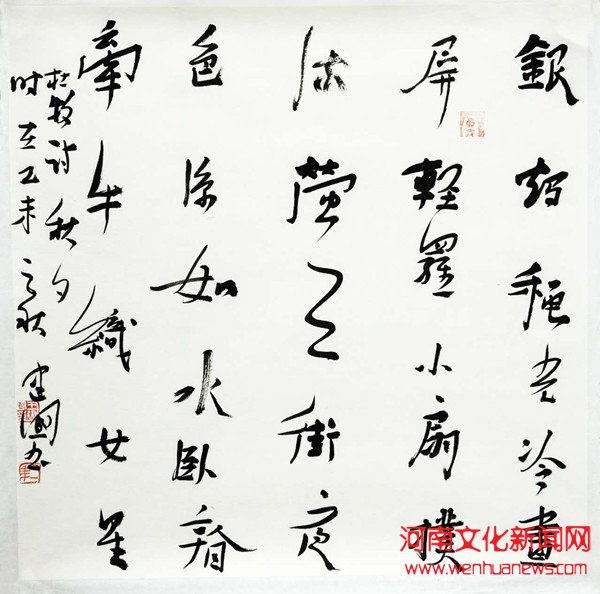 銀燭穐光冷畫
屏輕羅小扇撲
流螢天街夜
色涼如水臥看
牽牛織女星
杜牧詩秋夕
時在乙未之秋建國書
河南文化新闻网
www.wenhuanews.com